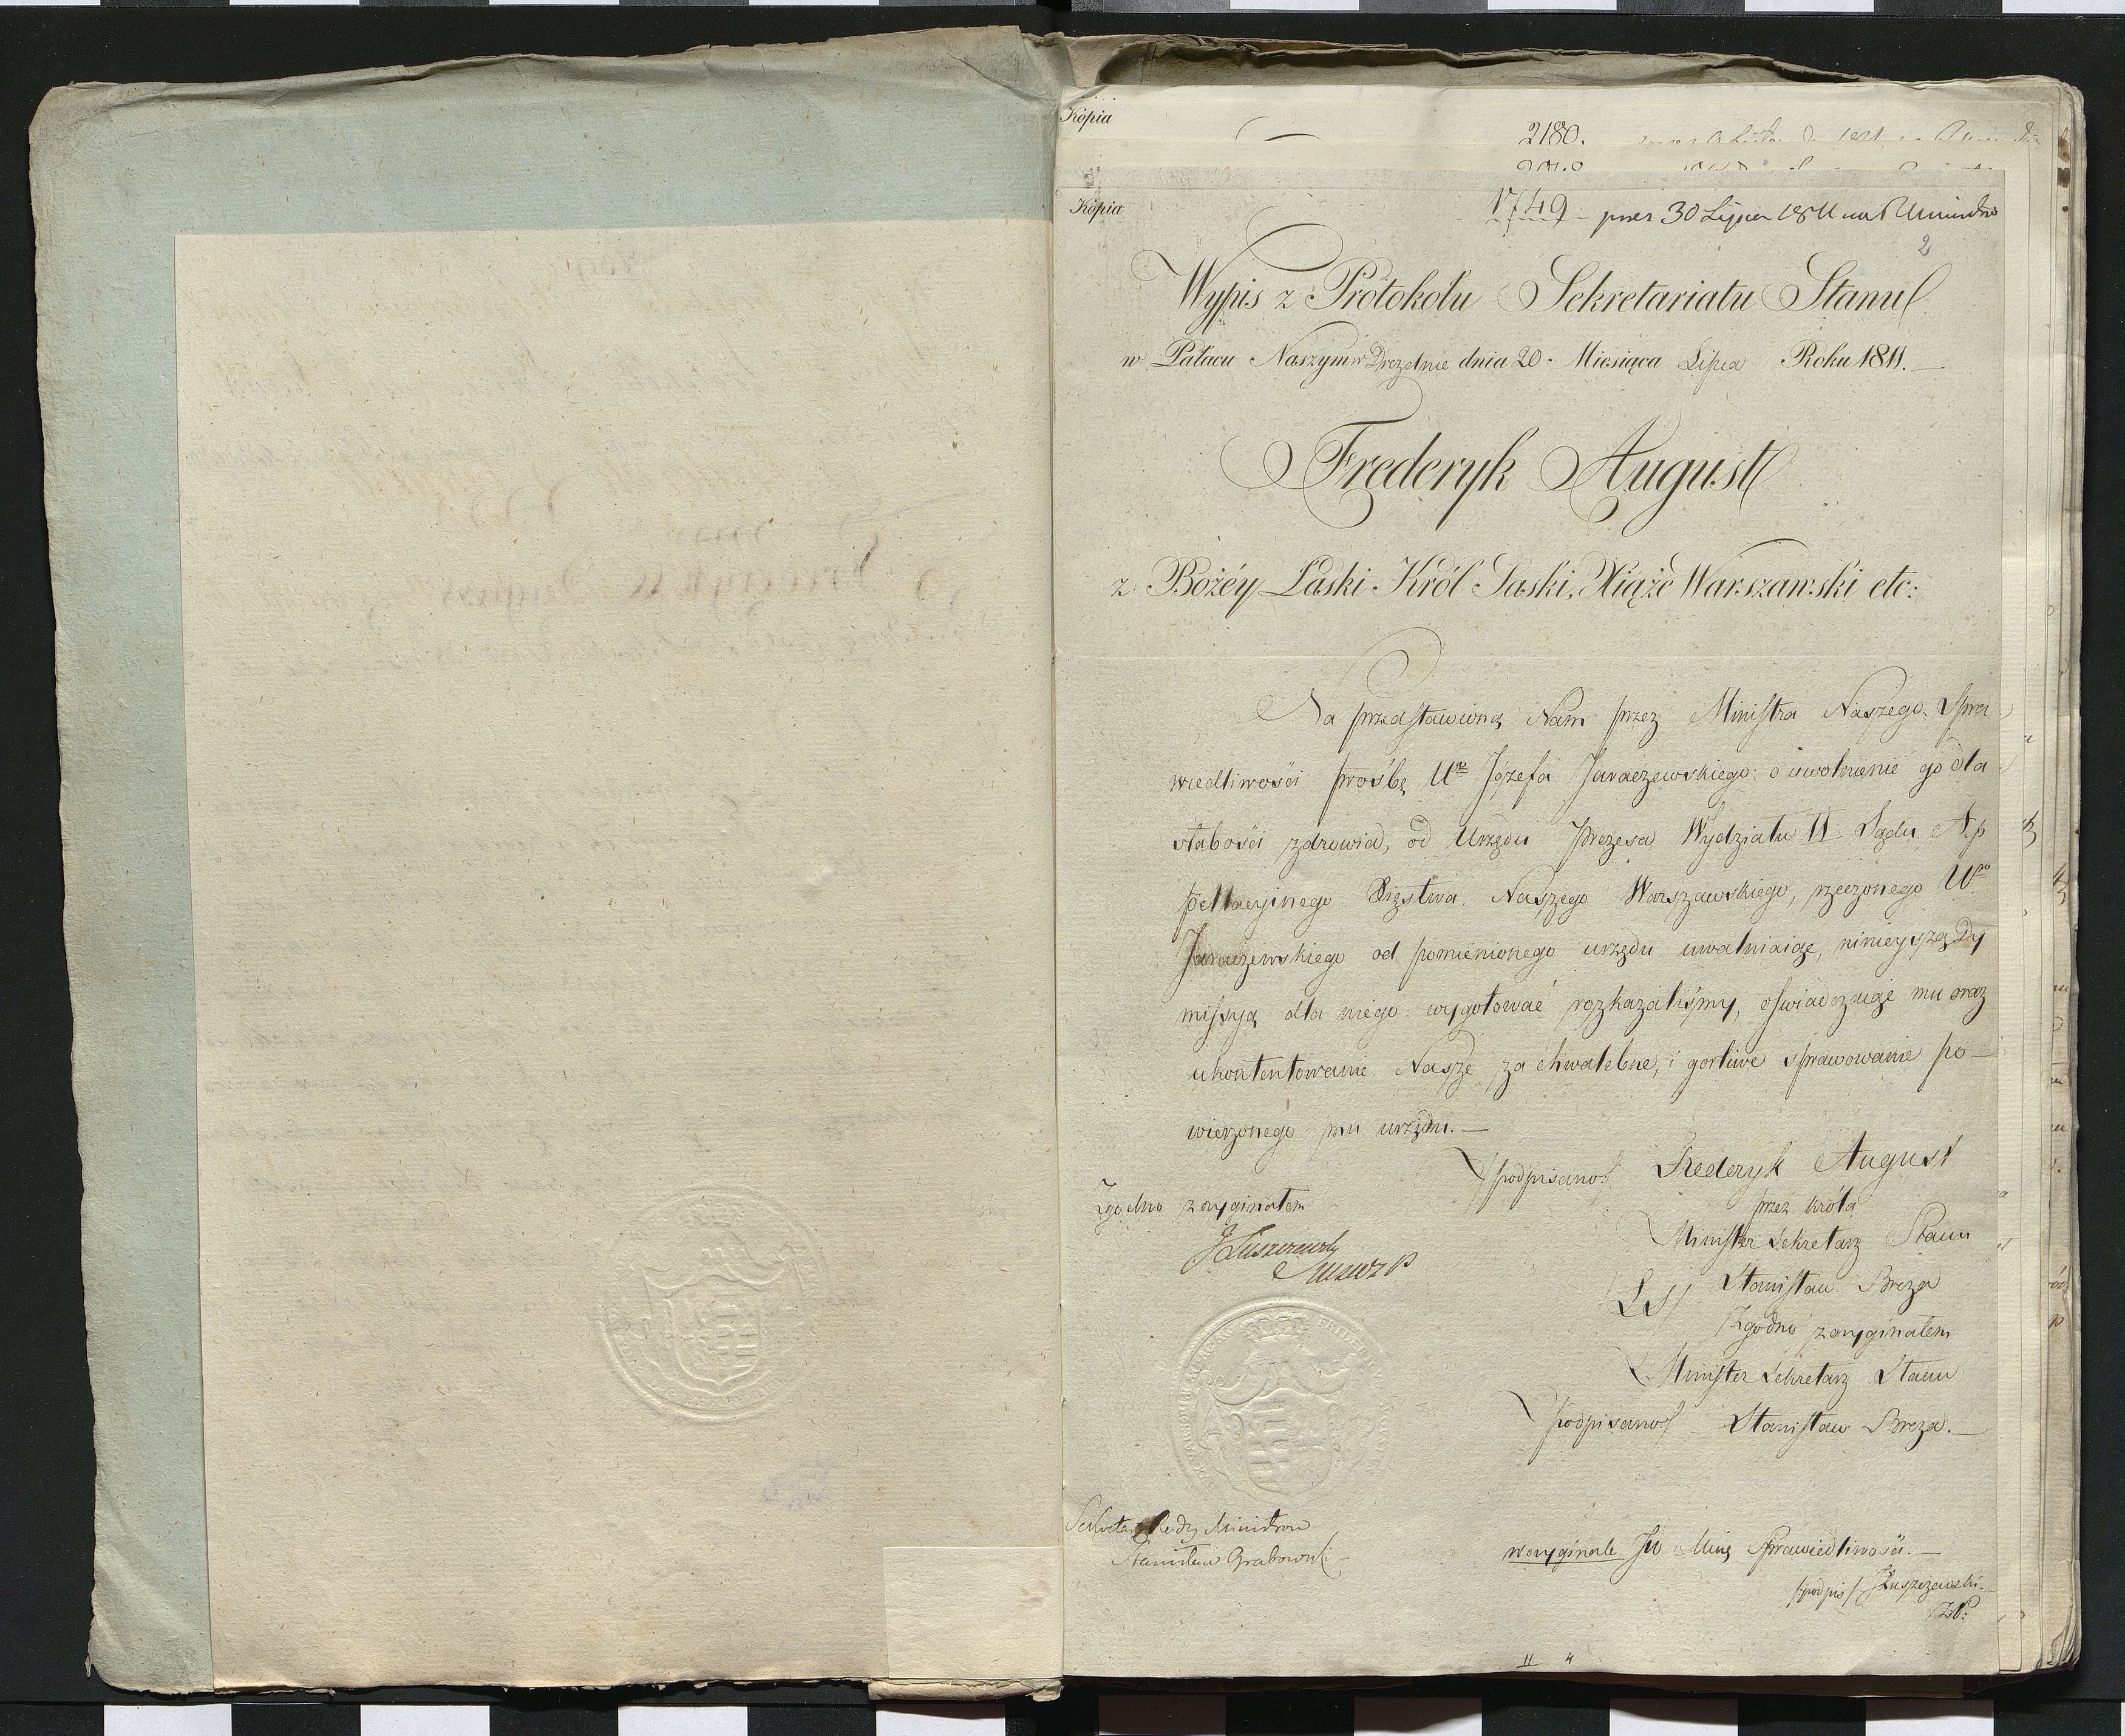 Kopia
2180.
Kopia
1749 - prez 30 Lipca 1811
2
Wypis z Protokołu Sekretariatu Stanu
w Pałacu Naszym w Dreznie dnia 20. Miesiąca Lipca Roku 1811.
Frederyk August
z Bożéy Łaski Król Saski, Xiąże Warszawski etc:
Na przedstawioną Nam przez Ministra Naszego Spra
wiedliwości prośbę Ur Józefa Jaraczewskiego: o uwolnienie go dla
słabości zdrowia, od Urzędu Prezesa Wydziału II Sądu Ap
pellacyinego Xięstwa Naszego Warszawskiego, rzeczonego Ur
Jaraczewskiego od pomienionego urzędu uwalniaiąc, ninieyszą Dy
missyą dla niego wygotować rozkazaliśmy, oświadczaiąc mu oraz
ukontentowanie Nasze za chwalebne, i gorliwe sprawowanie po-
wierzonego mu urzędu.—
/podpisano/ Frederyk August
Zgodno z oryginałem
przez króla
Minister Sekretarz Stanu
JŁuszczewski
LS/ Stanisław Breza
Zgodno z oryginałem
Minister Sekretarz Stanu
/podpisano/ Stanisław Breza.—
Sekretarz Rady Ministrow
Stanisław Grabowski
w oryginale JW Minę Sprawiedliwości.—
/podpis/ JŁuszczewski.
ZP:
II 4